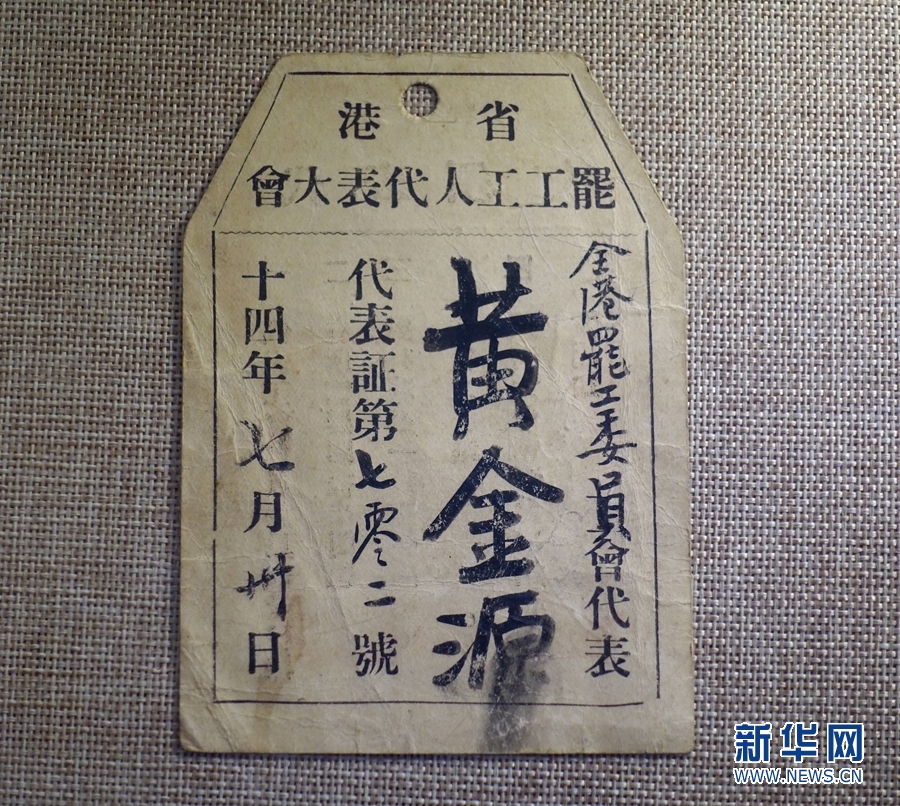 省港
罷工工人代表大會
全港罷工委員會代表
黄金源
代表証第七零二號
十四年七月卅日
新华网
WWW.NEWS.CN